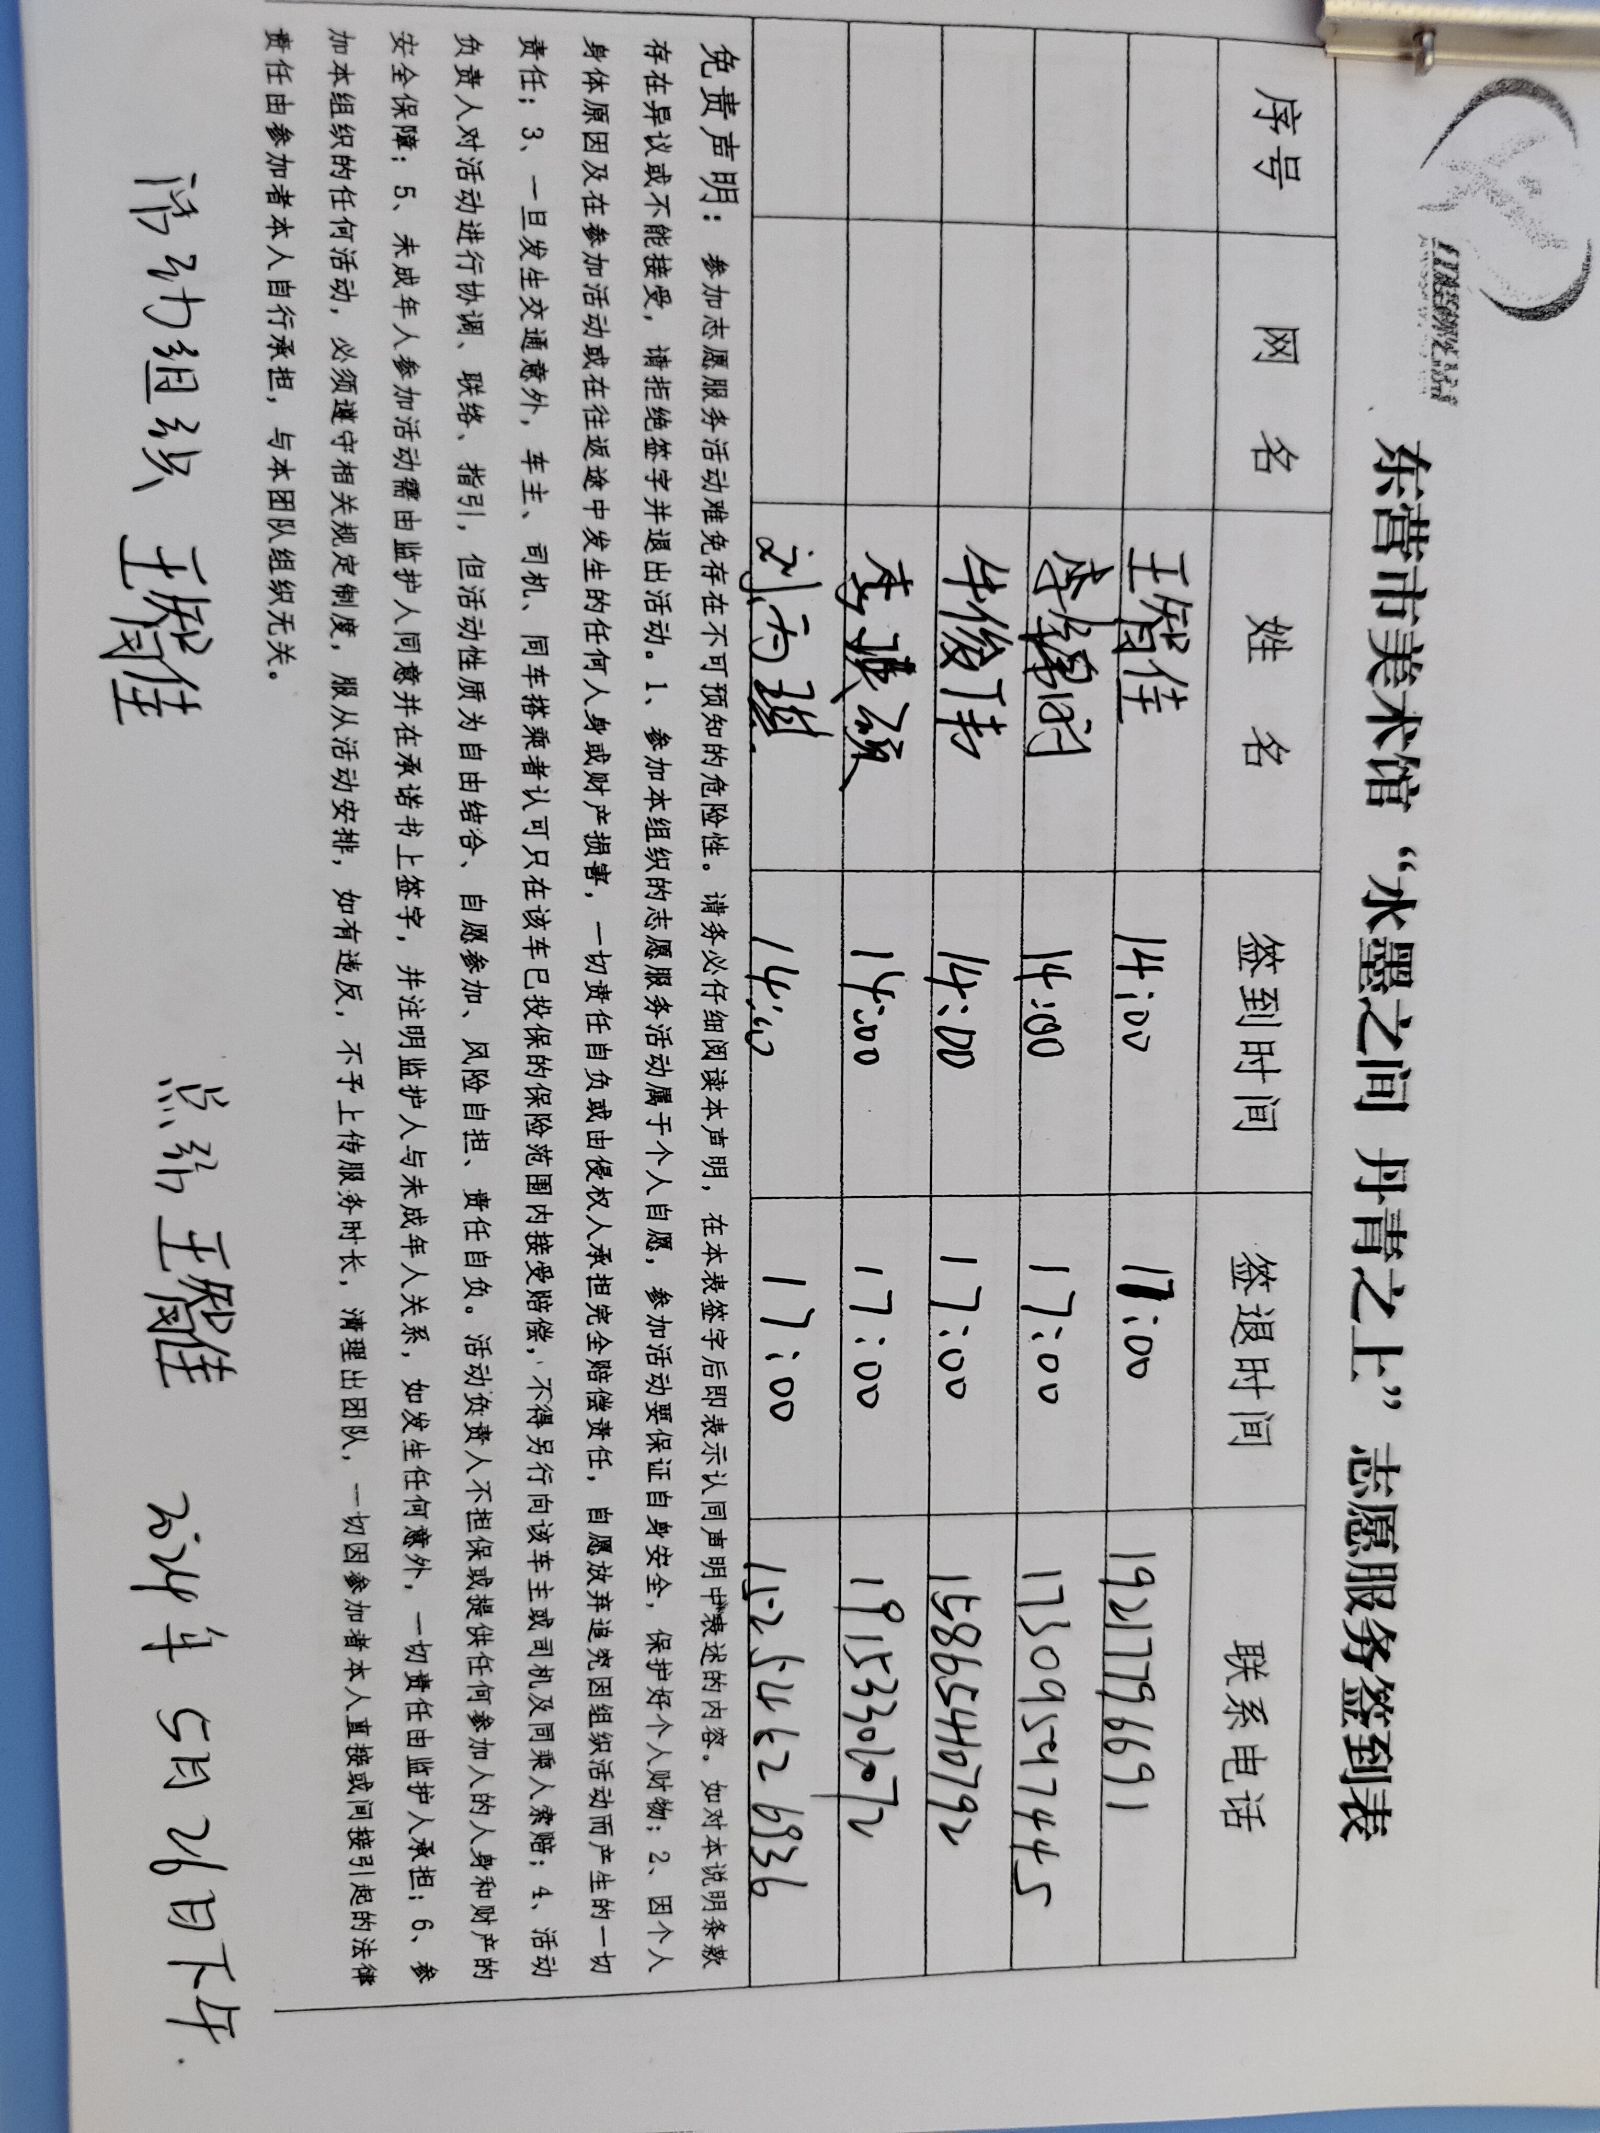 东营市美术馆“水墨之间 丹青之上”志愿服务签到表
序号 网 名 姓 名 签到时间 签退时间 联系电话
王智佳 14:00 17:00 19217796691
14:00 17:00 17309547445
牛俊玮 14:00 17:00 15865440792
14:00 17:00 19153301072
刘雨琪 14:00 17:00 15254626936
免责声明：参加志愿服务活动难免存在不可预知的危险性。请务必仔细阅读本声明，在本表签字后即表示认同声明中表述的内容。如对本说明条款
存在异议或不能接受，请拒绝签字并退出活动。1、参加本组织的志愿服务活动属于个人自愿，参加活动要保证自身安全，保护好个人财物；2、因个人
身体原因及在参加活动或在往返途中发生的任何人身或财产损害，一切责任自负或由侵权人承担完全赔偿责任，自愿放弃追究因组织活动而产生的一切
责任；3、一旦发生交通意外，车主、司机、同车搭乘者认可只在该车已投保的保险范围内接受赔偿，不得另行向该车主或司机及同乘人索赔；4、活动
负责人对活动进行协调、联络、指引，但活动性质为自由结合、自愿参加、风险自担、责任自负。活动负责人不担保或提供任何参加人的人身和财产的
安全保障；5、未成年人参加活动需由监护人同意并在承诺书上签字，并注明监护人与未成年人关系，如发生任何意外，一切责任由监护人承担；6、参
加本组织的任何活动，必须遵守相关规定制度，服从活动安排，如有违反，不予上传服务时长，清理出团队，一切因参加者本人直接或间接引起的法律
责任由参加者本人自行承担，与本团队组织无关。
活动组织 王智佳 总结 王智佳 2024年 5月 26日下午.